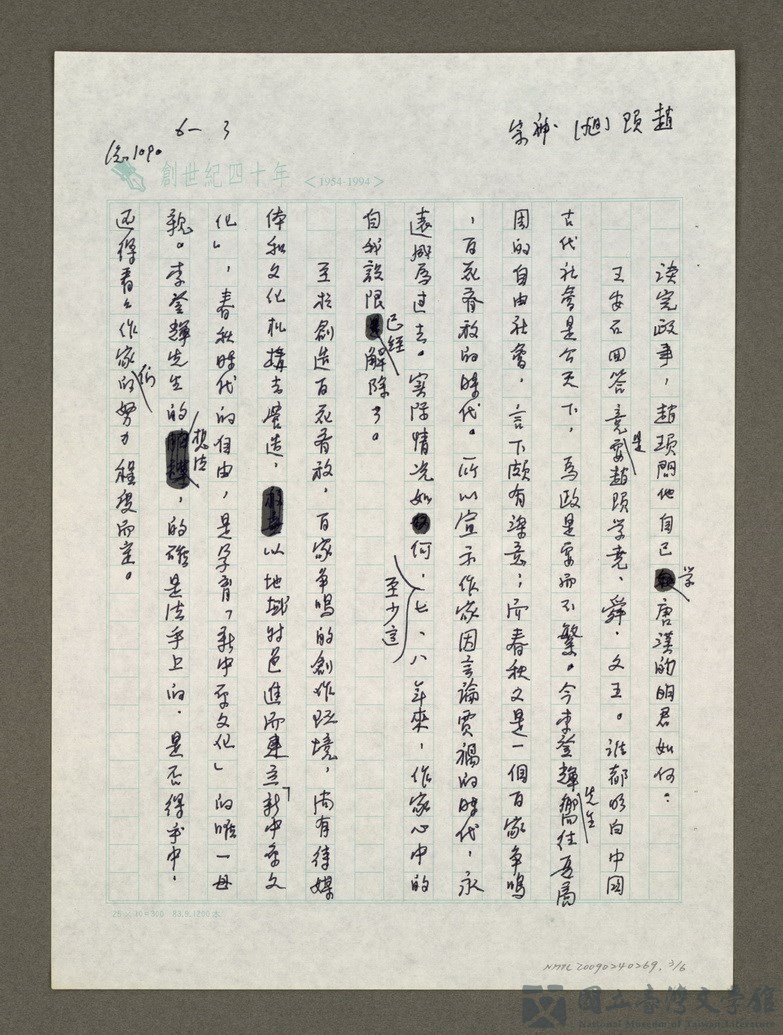 趙頊[旭] 宋神
6-3
創世紀四十年 <1954-1994>
談完政事,趙頊問他自己学唐漢的明君如何:
王安石回答竟是要趙頊学尭、舜、文王。誰都明白中国
古代社會是公天下,為政是要而不繁。今李登輝先生嚮往西周
周的自由社會,言下頗有深意;而春秋又是一個百家争鳴
,百花齊放的時代。所以宣示作家因言論賈禍的時代,永
遠成為过去。實際情况如何,至少這七、八年來,作家心中的
自我設限已經解除了。
至於創造百花齊放,百家争鳴的創作环境,尚有待媒
体和文化机構去營造,以地域特色進而建立「新中原文
化」,春秋時代的自由,是孕育「新中原文化」的唯一母
親。李登輝先生的想法,的確是法乎上的,是否得乎中,
还得看各作家们的努力程度而定。
25×
NMTL 20090240269. 3/6
國立臺灣文学館
National Museum of Taiwan Literature